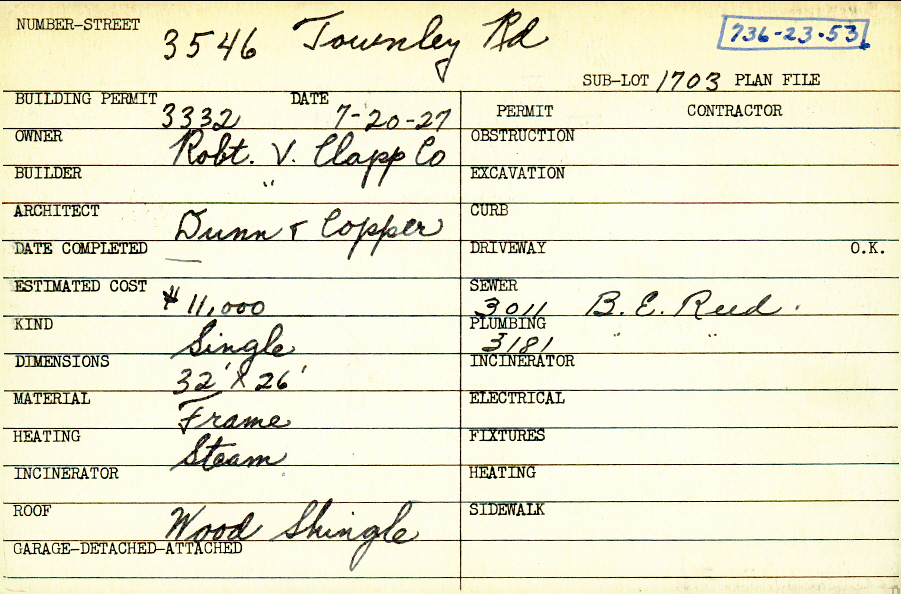 NUMBER-STREET 3546 Townley Rd 736-23-53
SUB-LOT 1703 PLAN FILE
BUILDING PERMIT 3332 DATE 7-20-27 PERMIT CONTRACTOR
OWNER Robt. V. Clapp Co OBSTRUCTION
BUILDER " EXCAVATION
ARCHITECT Dunn & Copper CURB
DATE COMPLETED — DRIVEWAY O.K.
ESTIMATED COST $11,000 SEWER 3011 B. E. Reed.
KIND Single PLUMBING 3181 " "
DIMENSIONS 32' X 26' INCINERATOR
MATERIAL Frame ELECTRICAL
HEATING Steam FIXTURES
INCINERATOR HEATING
ROOF Wood Shingle SIDEWALK
GARAGE-DETACHED-ATTACHED